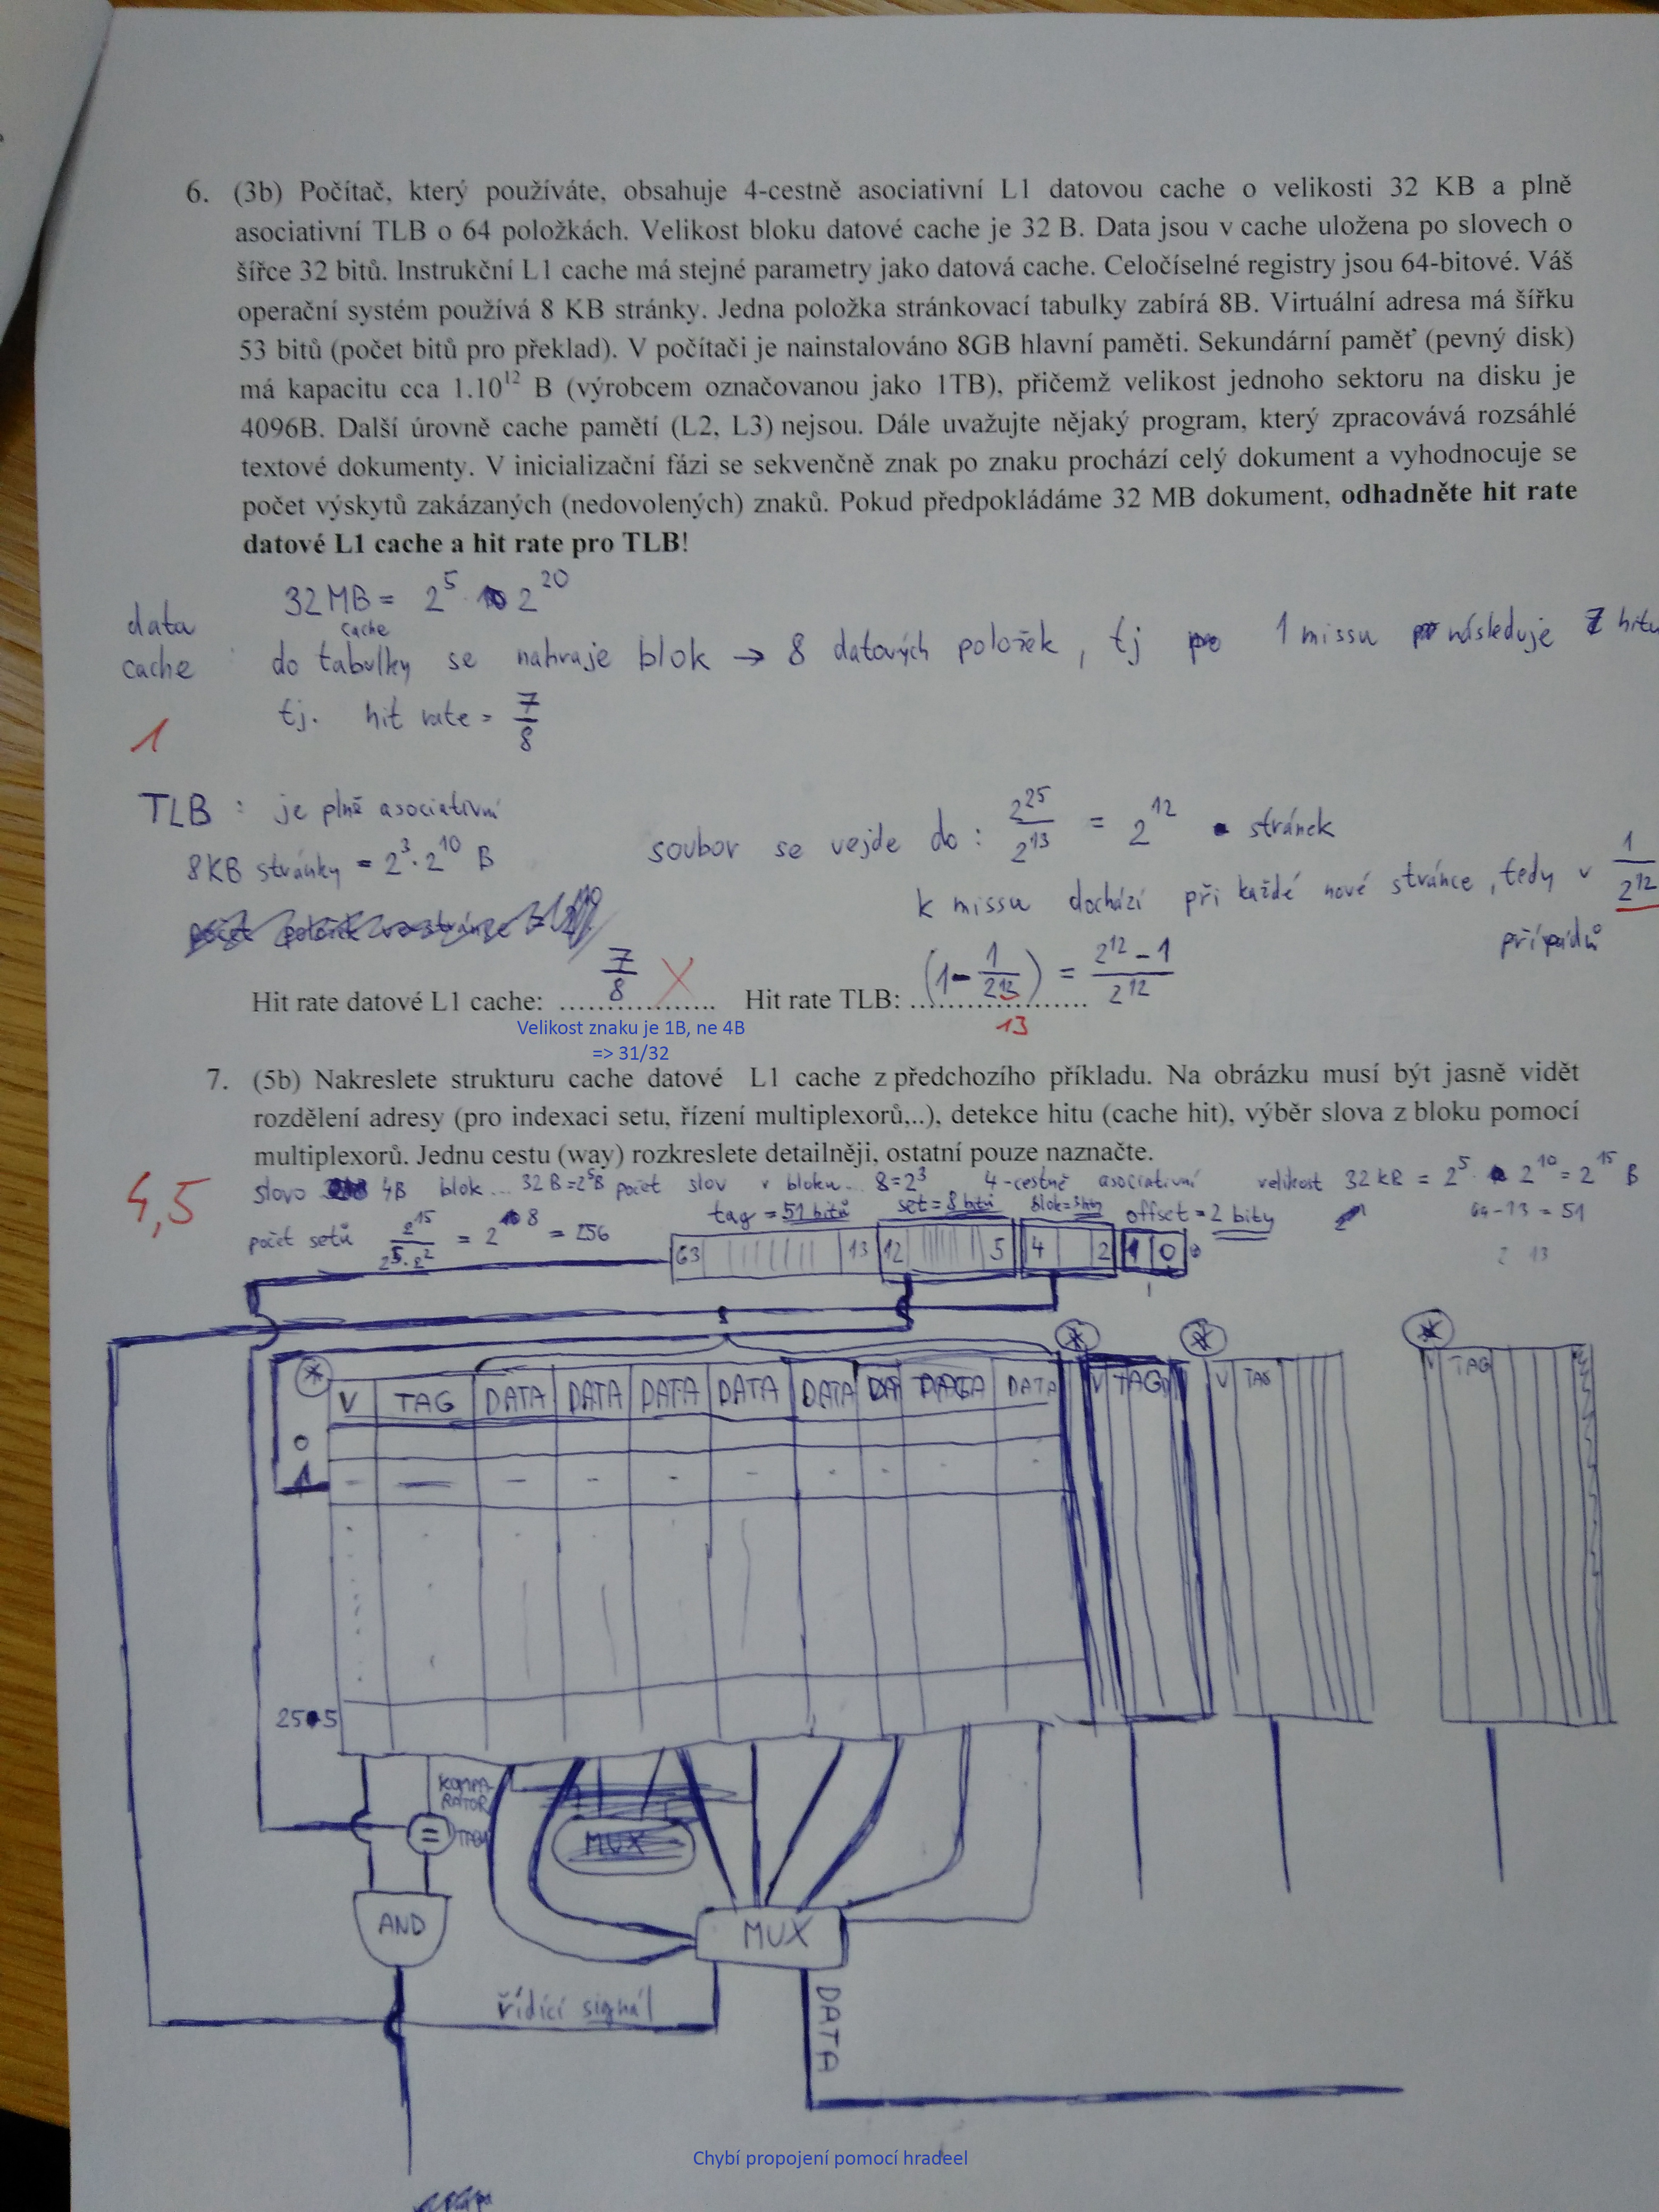 6. (3b) Počítač, který používáte, obsahuje 4-cestně asociativní L1 datovou cache o velikosti 32 KB a plně
asociativní TLB o 64 položkách. Velikost bloku datové cache je 32 B. Data jsou v cache uložena po slovech o
šířce 32 bitů. Instrukční L1 cache má stejné parametry jako datová cache. Celočíselné registry jsou 64-bitové. Váš
operační systém používá 8 KB stránky. Jedna položka stránkovací tabulky zabírá 8B. Virtuální adresa má šířku
53 bitů (počet bitů pro překlad). V počítači je nainstalováno 8GB hlavní paměti. Sekundární paměť (pevný disk)
má kapacitu cca 1.10^12 B (výrobcem označovanou jako 1TB), přičemž velikost jednoho sektoru na disku je
4096B. Další úrovně cache pamětí (L2, L3) nejsou. Dále uvažujte nějaký program, který zpracovává rozsáhlé
textové dokumenty. V inicializační fázi se sekvenčně znak po znaku prochází celý dokument a vyhodnocuje se
počet výskytů zakázaných (nedovolených) znaků. Pokud předpokládáme 32 MB dokument, odhadněte hit rate
datové L1 cache a hit rate pro TLB!
32 MB = 2^5 · 2^20
data cache : do cache tabulky se nahraje blok → 8 datových položek, tj 1 missu následuje 7 hitů
tj. hit rate = 7/8
1
TLB : je plně asociativní
8KB stránky = 2^3 · 2^10 B
soubor se vejde do : 2^25/2^13 = 2^12 stránek
k missu dochází při každé nové stránce, tedy v 1/2^12
případů
Hit rate datové L1 cache: 7/8 X Hit rate TLB: (1 - 1/2^12) = 2^12 - 1/2^12
13
Velikost znaku je 1B, ne 4B
=> 31/32
7. (5b) Nakreslete strukturu cache datové L1 cache z předchozího příkladu. Na obrázku musí být jasně vidět
rozdělení adresy (pro indexaci setu, řízení multiplexorů,..), detekce hitu (cache hit), výběr slova z bloku pomocí
multiplexorů. Jednu cestu (way) rozkreslete detailněji, ostatní pouze naznačte.
4,5
slovo 4B blok... 32B = 2^5B počet slov v bloku... 8 = 2^3 4-cestně asociativní velikost 32 kB = 2^5 · 2^10 = 2^15 B
počet setů 2^15/2^5·2^2 = 2^8 = 256 tag = 51 bitů set = 8 bitů blok = 3 bity offset = 2 bity 64-13 = 51
63 13 12 5 4 2 1 0
8
V TAG DATA DATA DATA DATA DATA DATA DATA V TAG V TAG V TAG
0
1
255
KOMPA-
RÁTOR
=
MUX
AND
MUX
řídící signál
DATA
Chybí propojení pomocí hradeel